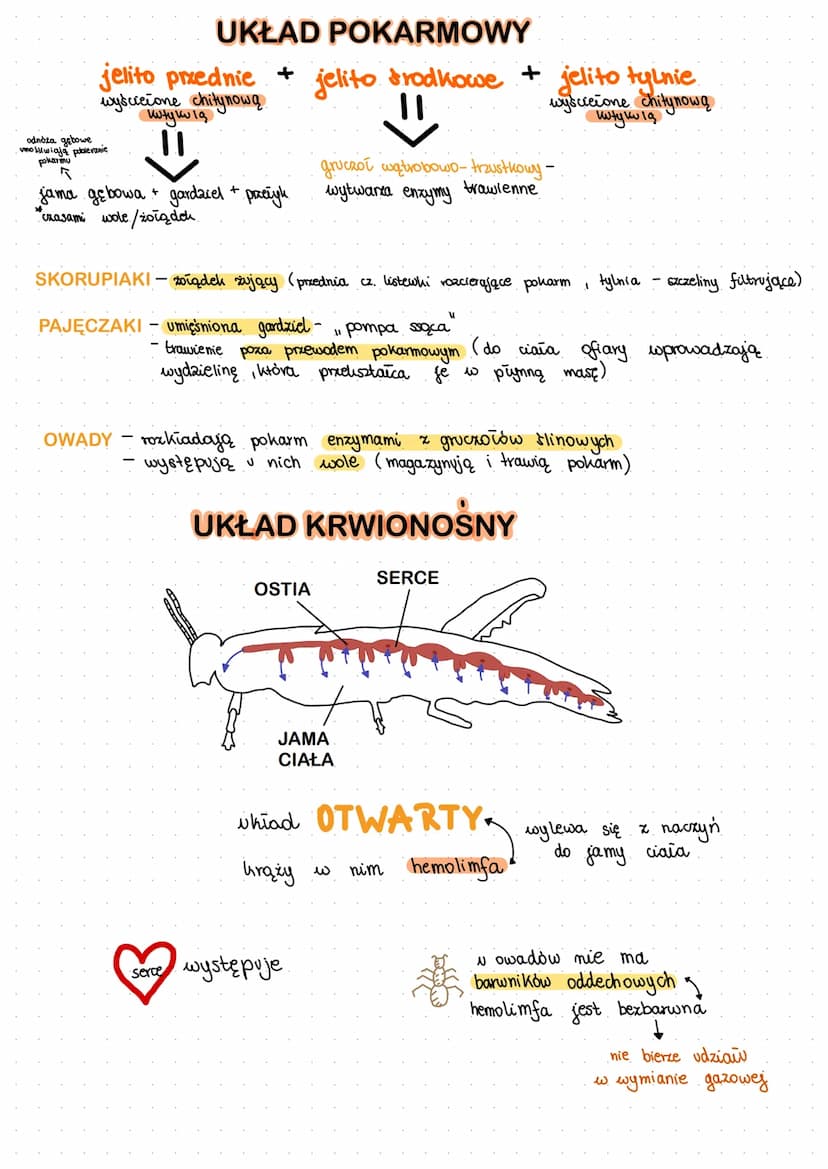 UKŁAD POKARMOWY
jelito przednie + jelito środkowe + jelito tylnie
wyścielone chitynową
kutykulą
wyścielone chitynową
kutykulą
odnóża gębowe
umożliwiają pobieranie
pokarmu
gruczoł wątrobowo-trzustkowy -
wytwarza enzymy trawienne
jama gębowa + gardziel + przełyk
*czasami wole/żołądek
SKORUPIAKI - żołądek żujący (przednia cz. listewki rozcierające pokarm, tylnia - szczeliny filtrujące)
PAJĘCZAKI - umięśniona gardziel - „pompa ssąca"
- trawienie poza przewodem pokarmowym (do ciała ofiary wprowadzają
wydzielinę, która przekształca je w płynną masę)
OWADY - rozkładają pokarm enzymami z gruczołów ślinowych
- występują u nich wole (magazynują i trawią pokarm)
UKŁAD KRWIONOŚNY
SERCE
OSTIA
JAMA
CIAŁA
układ OTWARTY
wylewa się z naczyń
do jamy ciała
krąży w nim hemolimfa
serce występuje
u owadów nie ma
barwników oddechowych
hemolimfa jest bezbarwna
nie bierze udziału
w wymianie gazowej